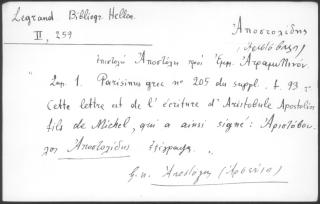 Legrand Bibliogr. Hellen.
II, 259
Ἀποστολίδης
(Ἀριστόβουλος)
ἐπιστολὴ Ἀποστόλη πρὸς Ἐμμ. Ἀτραμυττηνόν
1. Parisinus grec no 205 du suppl. f. 93 r
Cette lettre est de l'écriture d'Aristobule Apostolis
fils de Michel, qui a ainsi signé: Ἀριστόβου-
λος Ἀποστολίδης ἔγραψα.
Ἀποστόλης (Ἀρσένιος)